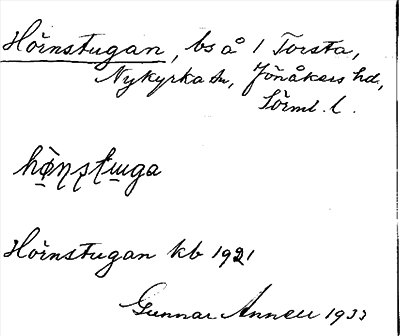 Hörnstugan, bs å 1 Torsta,
Nykyrka sn, Jönåkers hd,
Sörml. l.
Hörnstugan kb 1921
Gunnar Annell 1933